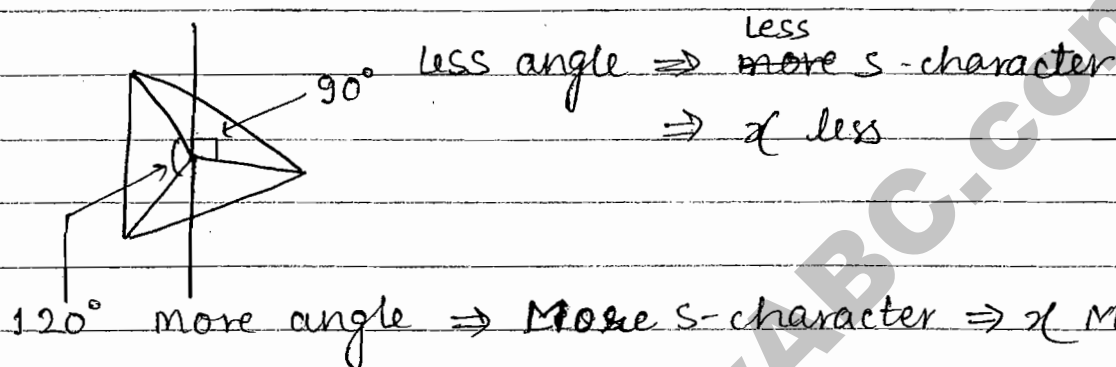 Less
90° Less angle ⇒ more s-character
⇒ x less
120° more angle ⇒ More s-character ⇒ x M
ABC.com